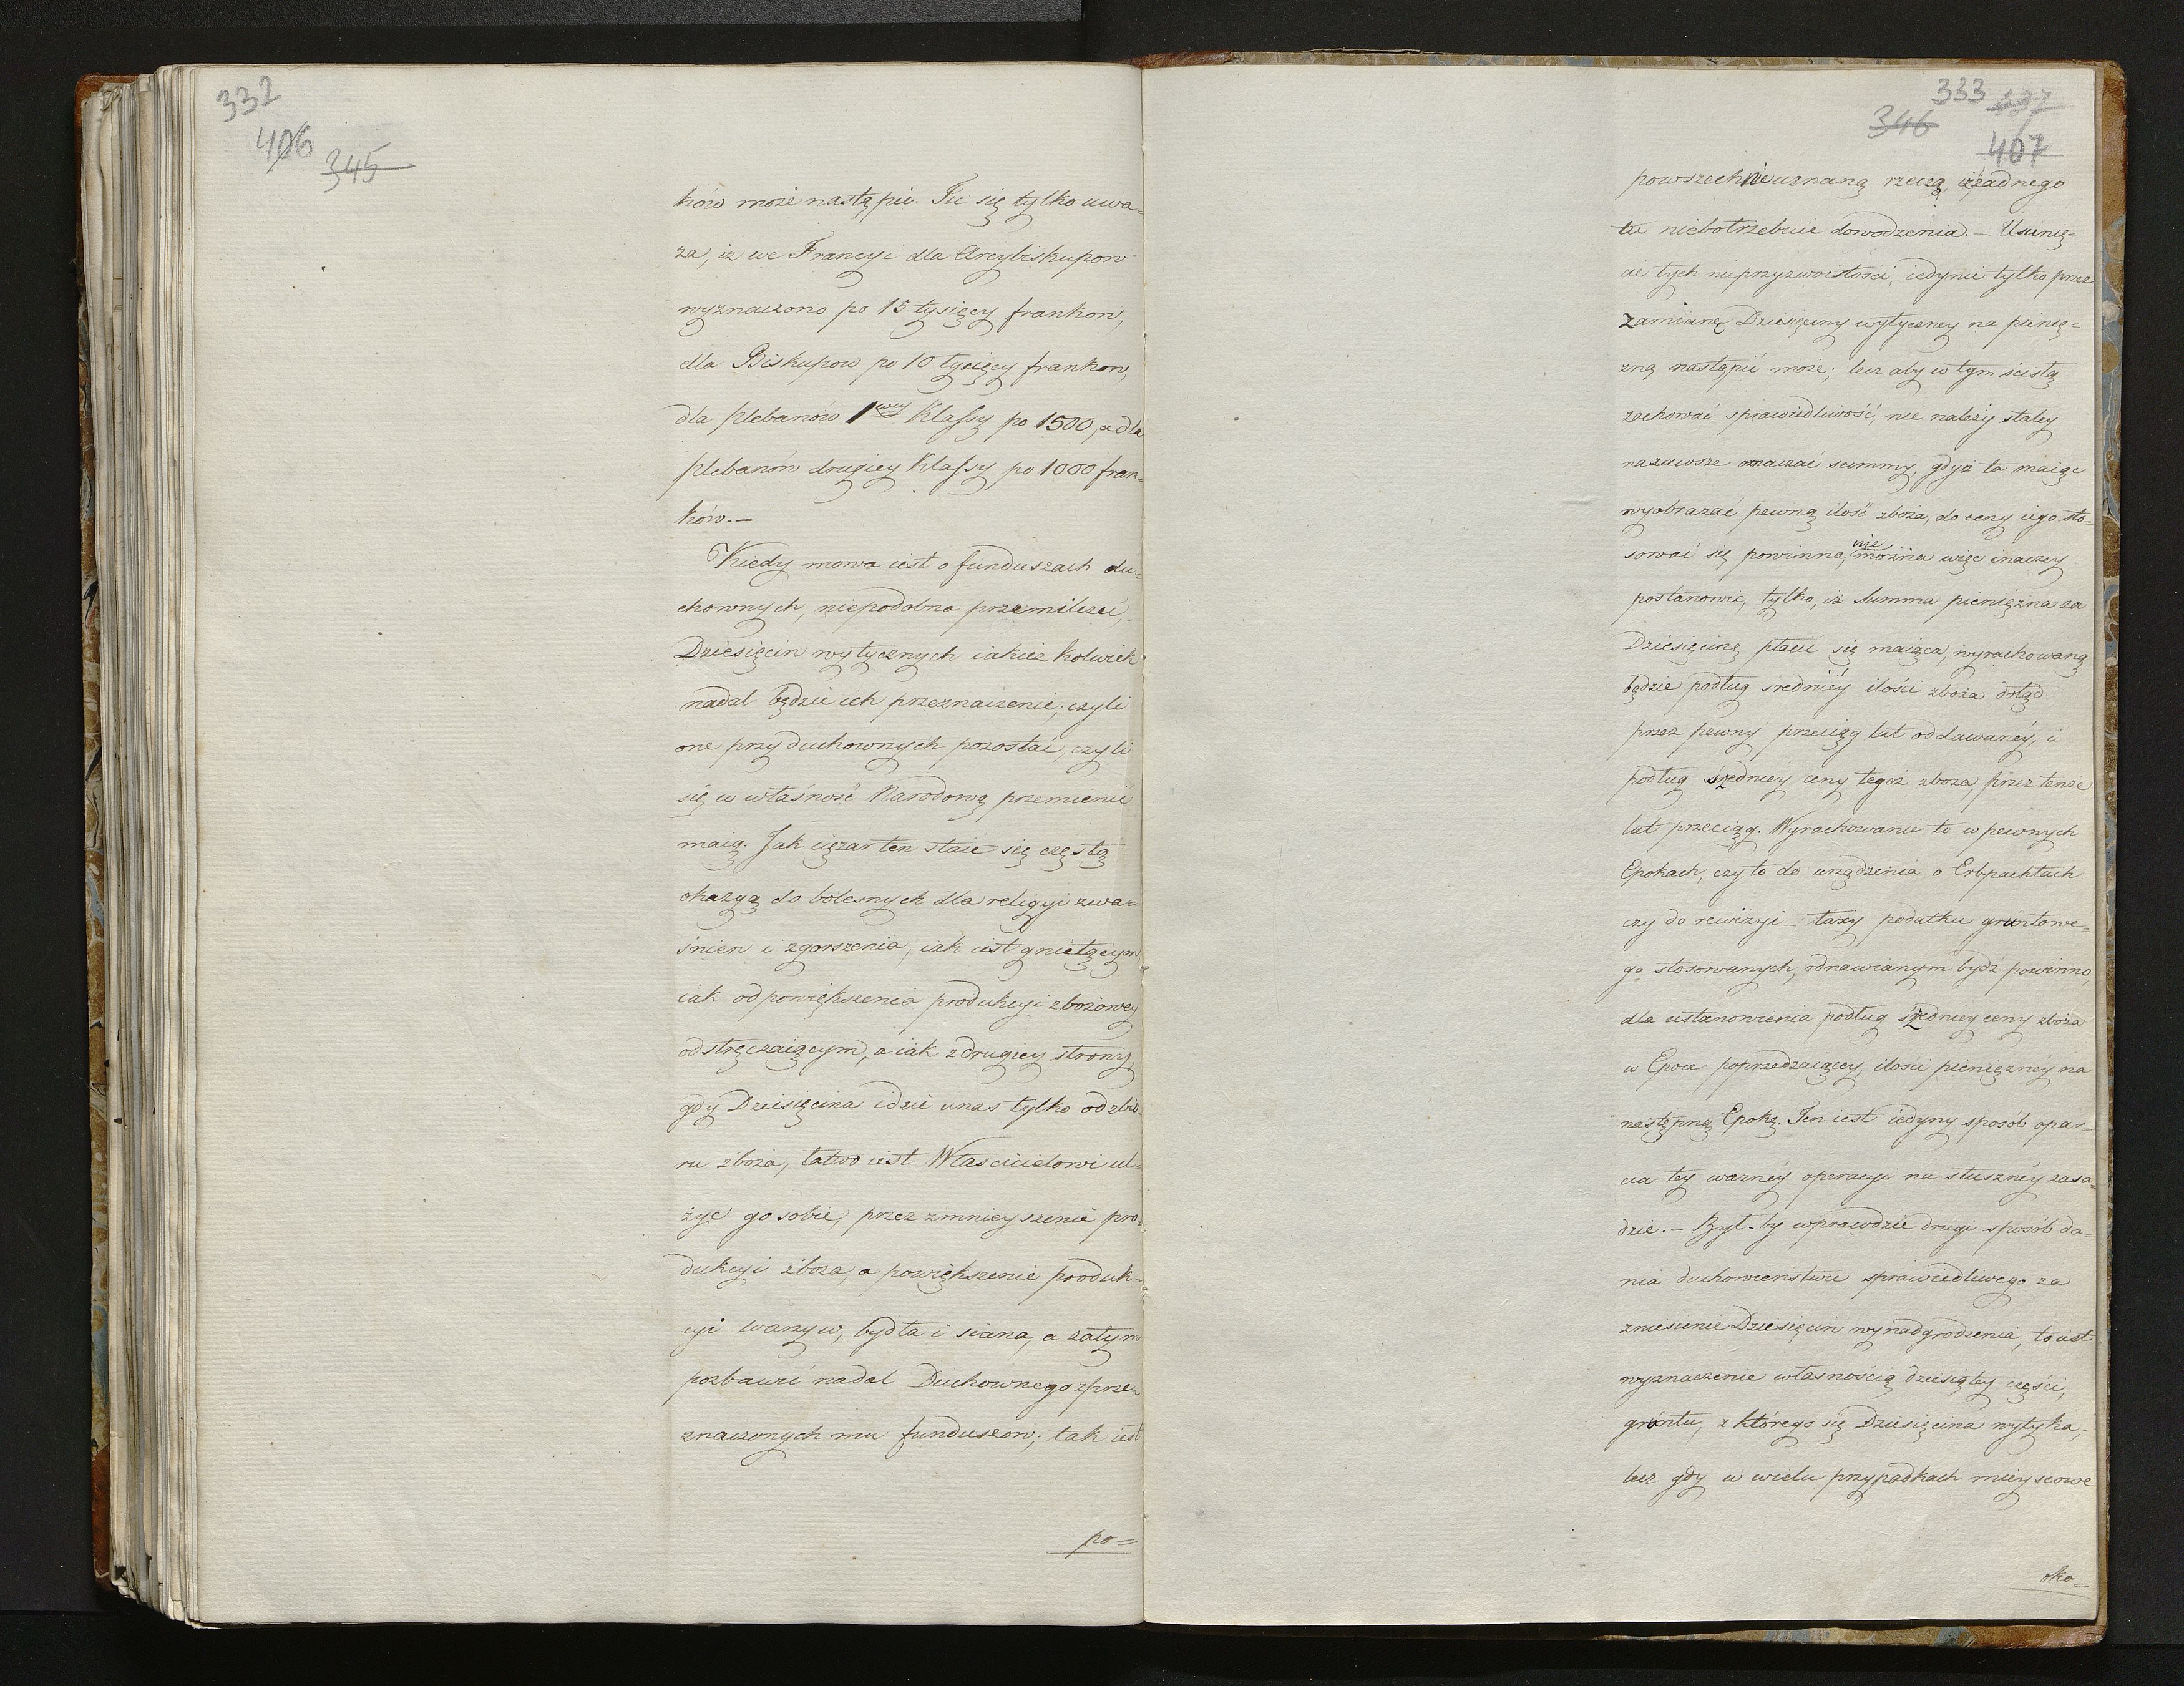 332
406
345
ków może nastąpić. Tu się tylko uwa=
ża, iż we Francyi dla Arcybiskupow
wyznaczono po 15 tysięcy frankow,
dla Biskupow po 10 tycięcy frankow,
dla plebanów 1wszy Klassy po 1500, a dla
plebanów drugiey Klassy po 1000 fran=
ków.—
Kiedy mowa iest o funduszach du=
chownych, niepodobna przemilczeć,
Dziesięcin wytycznych iakież kolwiek
nadal będzie ich przeznaczenie, czyli
one przy duchownych pozostać, czyli
się w własność Narodową przemienić
maią. Jak ciężar ten staie się częstą
okazyą do bolesnych dla religyi zwa=
śnien i zgorszenia, iak iest gnietącym
iak od powiększenia produkcyi zbożowey
odstręczaiącym, a iak z drugiey strony,
gdy Dziesięcina idzie u nas tylko od zbio=
ru zboża, łatwo iest Właścicielowi ul=
żyć go sobie, przez zmnieyszenie pro=
dukcyi zboża, a powiększenie produk=
cyi warzyw, bydła i siana, a zatym
pozbawić nadal Duchownego z prze=
znaczonych mu funduszow; tak iest
po=
333 337
346
407
powszechnie uznaną rzeczą, iż żadnego
tu niebotrzebuie dowodzenia.— Usunię=
cie tych nieprzyzwoitości, iedynie tylko przez
zamianę Dziesięciny wytyczney na pienię=
żną nastąpić może; lecz aby w tym ścisłą
zachować sprawiedliwość, nie należy stałey
nazawsze oznaczać summy, gdyż ta maiąc
wyobrażać pewną ilość zboża, do ceny iego sto=
sować się powinna, nie można więc inaczey
postanowić, tylko, iż Summa pieniężna za
Dziesięcinę płacić się maiąca, wyrachowaną
będzie podług średniéy ilości zboża dotąd
przez pewny przeciąg lat oddawanéy, i
podług średniey ceny tegoż zboża, przez tenże
lat przeciąg. Wyrachowanie to w pewnych
Epokach, czy to do urządzenia o Erbpachtach
czy do rewizyi taxy podatku gruntowe=
go stosowanych, odnawianym bydź powinno,
dla ustanowienia podług średniey ceny zboża
w Epoce poprzedzaiącey, ilości pieniężnéy na
następną Epokę. Ten iest iedyny sposób opar=
cia tey ważnéy operacyi na słusznéy zasa=
dzie.— Był-by wprawdzie drugi sposób da=
nia duchowieństwu sprawiedliwego za
zniesienie Dziesięcin wynadgrodzenia, to iest
wyznaczenie własnością dziesiątey części,
gruntu, z którego się Dziesięcina wytyka,
lecz gdy w wielu przypadkach mieyscowe
oko=